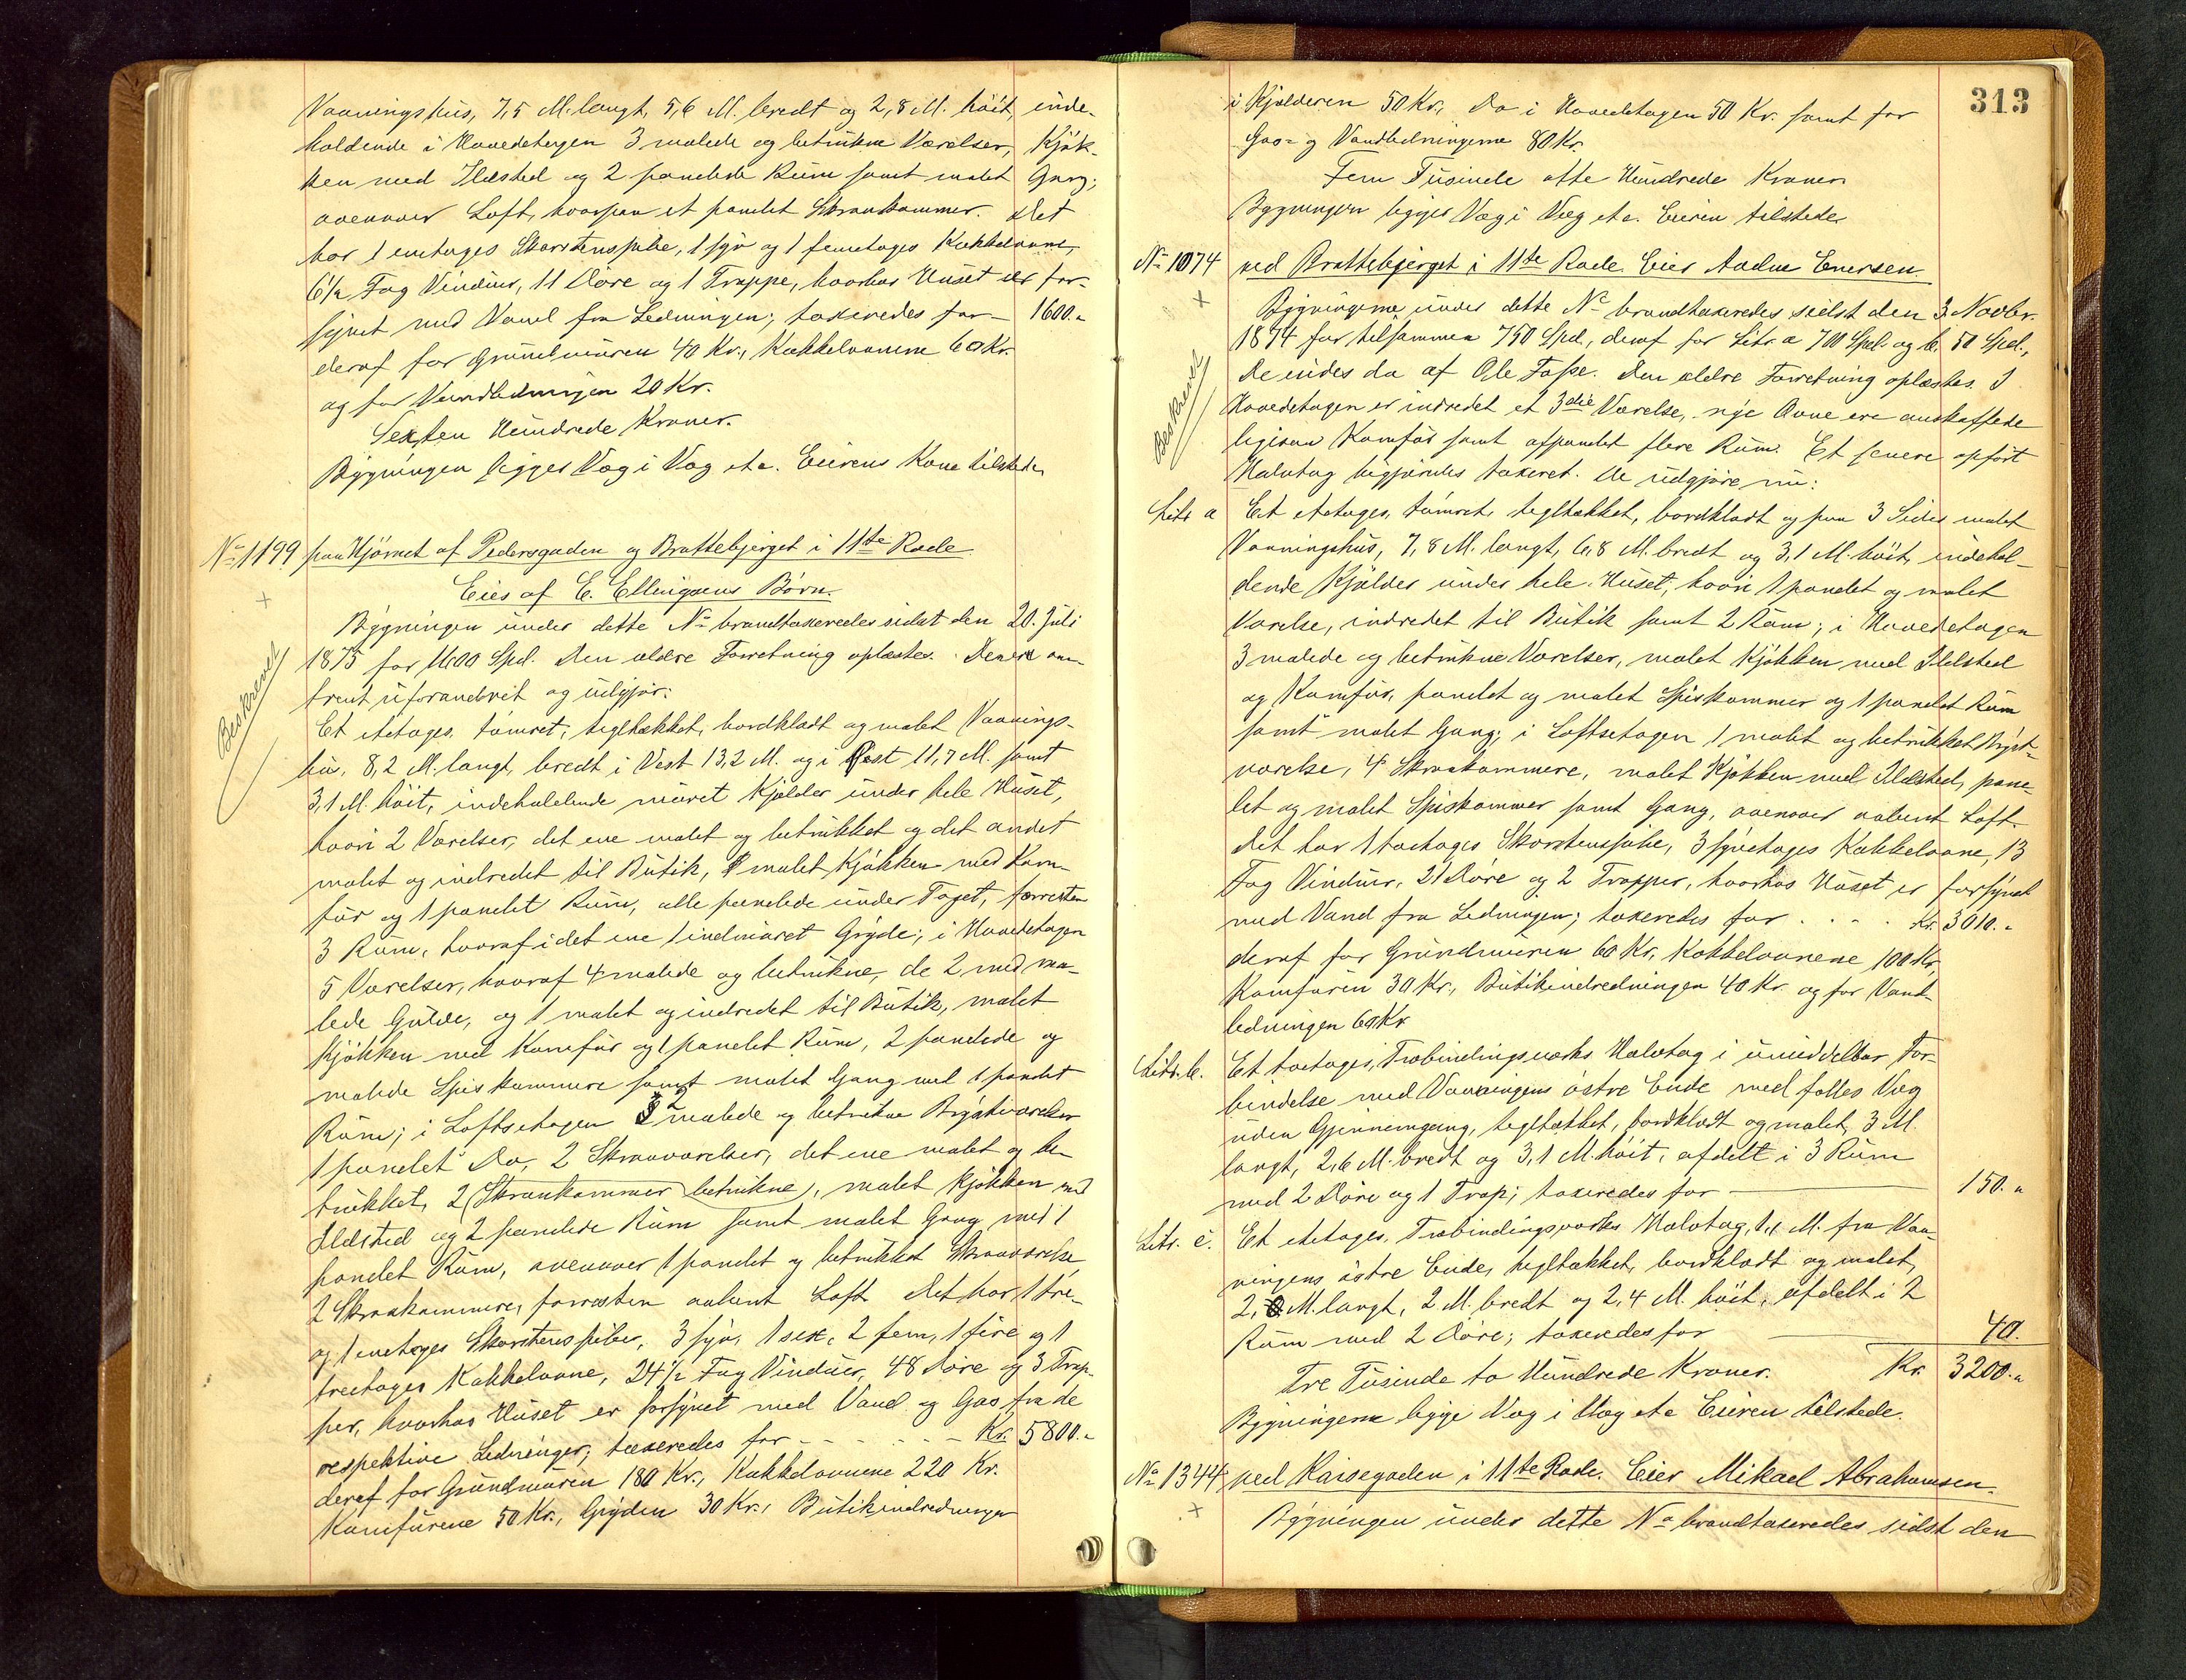 Vaaningshus, 7,5 M. langt, 5,6 M. bredt og 2,8 M. höit, inde-
holdende i Hovedetagen 3 malede og betrukne Værelser, Kjök-
ken med Ildsted og 2 panelede Rum samt malet Gang;
ovenover Loft, hvorpaa et panelet Skraakammer. Det
har 1 enetages Skorstenspibe, 1 syv og 1 femetages Kakkelovne,
6½ Fag Vinduer, 11 Döre og 1 Trappe, hvorhos Huset er for-
synet med Vand fra Ledningen; taxeredes for — 1600.„
deraf for Grundmuren 40 Kr., Kakkelovnene 60 Kr.
og for Vandledningen 20 Kr.
Sexten Hundrede Kroner.
Bygningen ligger Væg i Væg etc. Eierens Kone tilstede.
No 1199 paa Hjörnet af Pedersgaden og Brattebjerget i 11te Rode
Eies af E. Ellingsens Börn.
Bygningen under dette No brandtaxeredes sidst den 20. Juli
1875 for 1600 Spd. Den ældre Forretning oplæstes. Den er om-
trent uforandret og udgjör:
Beskrevet
Et etetages, tömret, tegltækket, bordklædt og malet Vaanings-
hus, 8,2 M. langt, bredt i Vest 13,2 M. og i Öst 11,7 M. samt
3,1 M. höit, indeholdende muret Kjælder under hele Huset,
hvori 2 Værelser, det ene malet og betrukket og det andet
malet og indredet til Butik, malet Kjökken med Kom-
für og 1 panelet Rum, alle panelede under Taget, forresten
3 Rum, hvoraf i det ene 1 indmuret Gryde; i Hovedetagen
5 Værelser, hvoraf 4 malede og betrukne, de 2 med ma-
lede Gulve, og 1 malet og indredet til Butik, malet
Kjökken med Komfür og 1 panelet Rum, 2 panelede og
malede Spiskammere samt malet Gang med 1 panelet
Rum; i Loftsetagen 2 malede og betrukne Brystværelser
1 panelet Do, 2 Skraaværelser, det ene malet og be-
trukket, 2 Skraakammer (betrukne), malet Kjökken med
Ildsted og 2 panelede Rum samt malet Gang med 1
panelet Rum, ovenover 1 panelet og betrukket Skraaværelse
2 Skraakammere, forresten aabent Loft. Det har 1 tre-
og 1 enetages Skorstenspiber, 3 syv, 1 sex, 2 fem, 1 fire og 1
treetages Kakkelovne, 24½ Fag Vinduer, 48 Döre og 3 Trap-
per, hvorhos Huset er forsynet med Vand og Gas fra de
respektive Ledninger; taxeredes for - - - - - Kr. 5800.„
deraf for Grundmuren 180 Kr., Kakkelovnene 220 Kr.
Komfürene 50 Kr., Gryden 30 Kr., Butikindredningen
313
i Kjælderen 50 Kr., Do i Hovedetagen 50 Kr. samt for
Gas- og Vandledningerne 80 Kr.
Fem Tusinde otte Hundrede Kroner
Bygningen ligger Væg i Væg etc. Eieren tilstede.
No 1074 ved Brattebjerget i 11te Rode. Eier Aadne Enersen
Bygningerne under dette No brandtaxeredes sidst den 3 Novbr.
1874 for tilsammen 750 Spd., deraf for Litr. a 700 Spd. og b. 50 Spd.,
De eiedes da af Ole Fosse. Den ældre Forretning oplæstes. I
Beskrevet
Hovedetagen er indredet et 3die Værelse, nye Ovne ere anskaffede
ligesaa Komfür samt afpanelet flere Rum. Et senere opfört
Halvtag begjæredes taxeret. De udgjöre nu:
Litr a Et etetages, tömret, tegltækket, bordklædt og paa 3 Sider malet
Vaaningshus, 7,8 M. langt, 6,8 M. bredt og 3,1 M. höit, indehol-
dende Kjælder under hele Huset, hvori 1 panelet og malet
Værelse, indredet til Butik samt 2 Rum; i Hovedetagen
3 malede og betrukne Værelser, malet Kjökken med Ildsted
og Komfür, panelet og malet Spiskammer og 1 panelet Rum
samt malet Gang; i Loftsetagen 1 malet og betrukket Bryst-
værelse, 4 Skraakammere, malet Kjökken med Ildsted, pane-
let og malet Spiskammer samt Gang, ovenover aabent Loft.
Det har 1 toetages Skorstenspibe, 3 syvetages Kakkelovne, 13
Fag Vinduer, 21 Döre og 2 Trapper, hvorhos Huset er forsynet
med Vand fra Ledningen; taxeredes for . . . . Kr. 3010.„
deraf for Grundmuren 60 Kr, Kakkelovnene 100 Kr,
Komfüren 30 Kr., Butikindredningen 40 Kr. og for Vand-
ledningen 60 Kr
Litr. b. Et toetages, Træbindingsværks Halvtag i umiddelbar For-
bindelse med Vaaningens östre Ende med fælles Væg
uden Gjennemgang, tegltækket, bordklædt og malet, 3 M.
langt, 2,6 M. bredt og 3,1 M. höit, afdelt i 3 Rum
med 2 Döre og 1 Trap; taxeredes for — 150.„
Litr. c. Et etetages, Træbindingsværks Halvtag, 1,1 M. fra Vaa-
ningens östre Ende, tegltækket, bordklædt og malet,
2, M. langt, 2 M. bredt og 2,4 M. höit, afdelt i 2
Rum med 2 Döre; taxeredes for — 40.
Tre Tusinde to Hundrede Kroner. Kr. 3200.„
Bygningerne ligge Væg i Væg etc Eieren tilstede.
No 1344 ved Karsegaden i 11te Rode. Eier Mikael Abrahamsen.
Bygningen under dette No brandtaxeredes sidst den